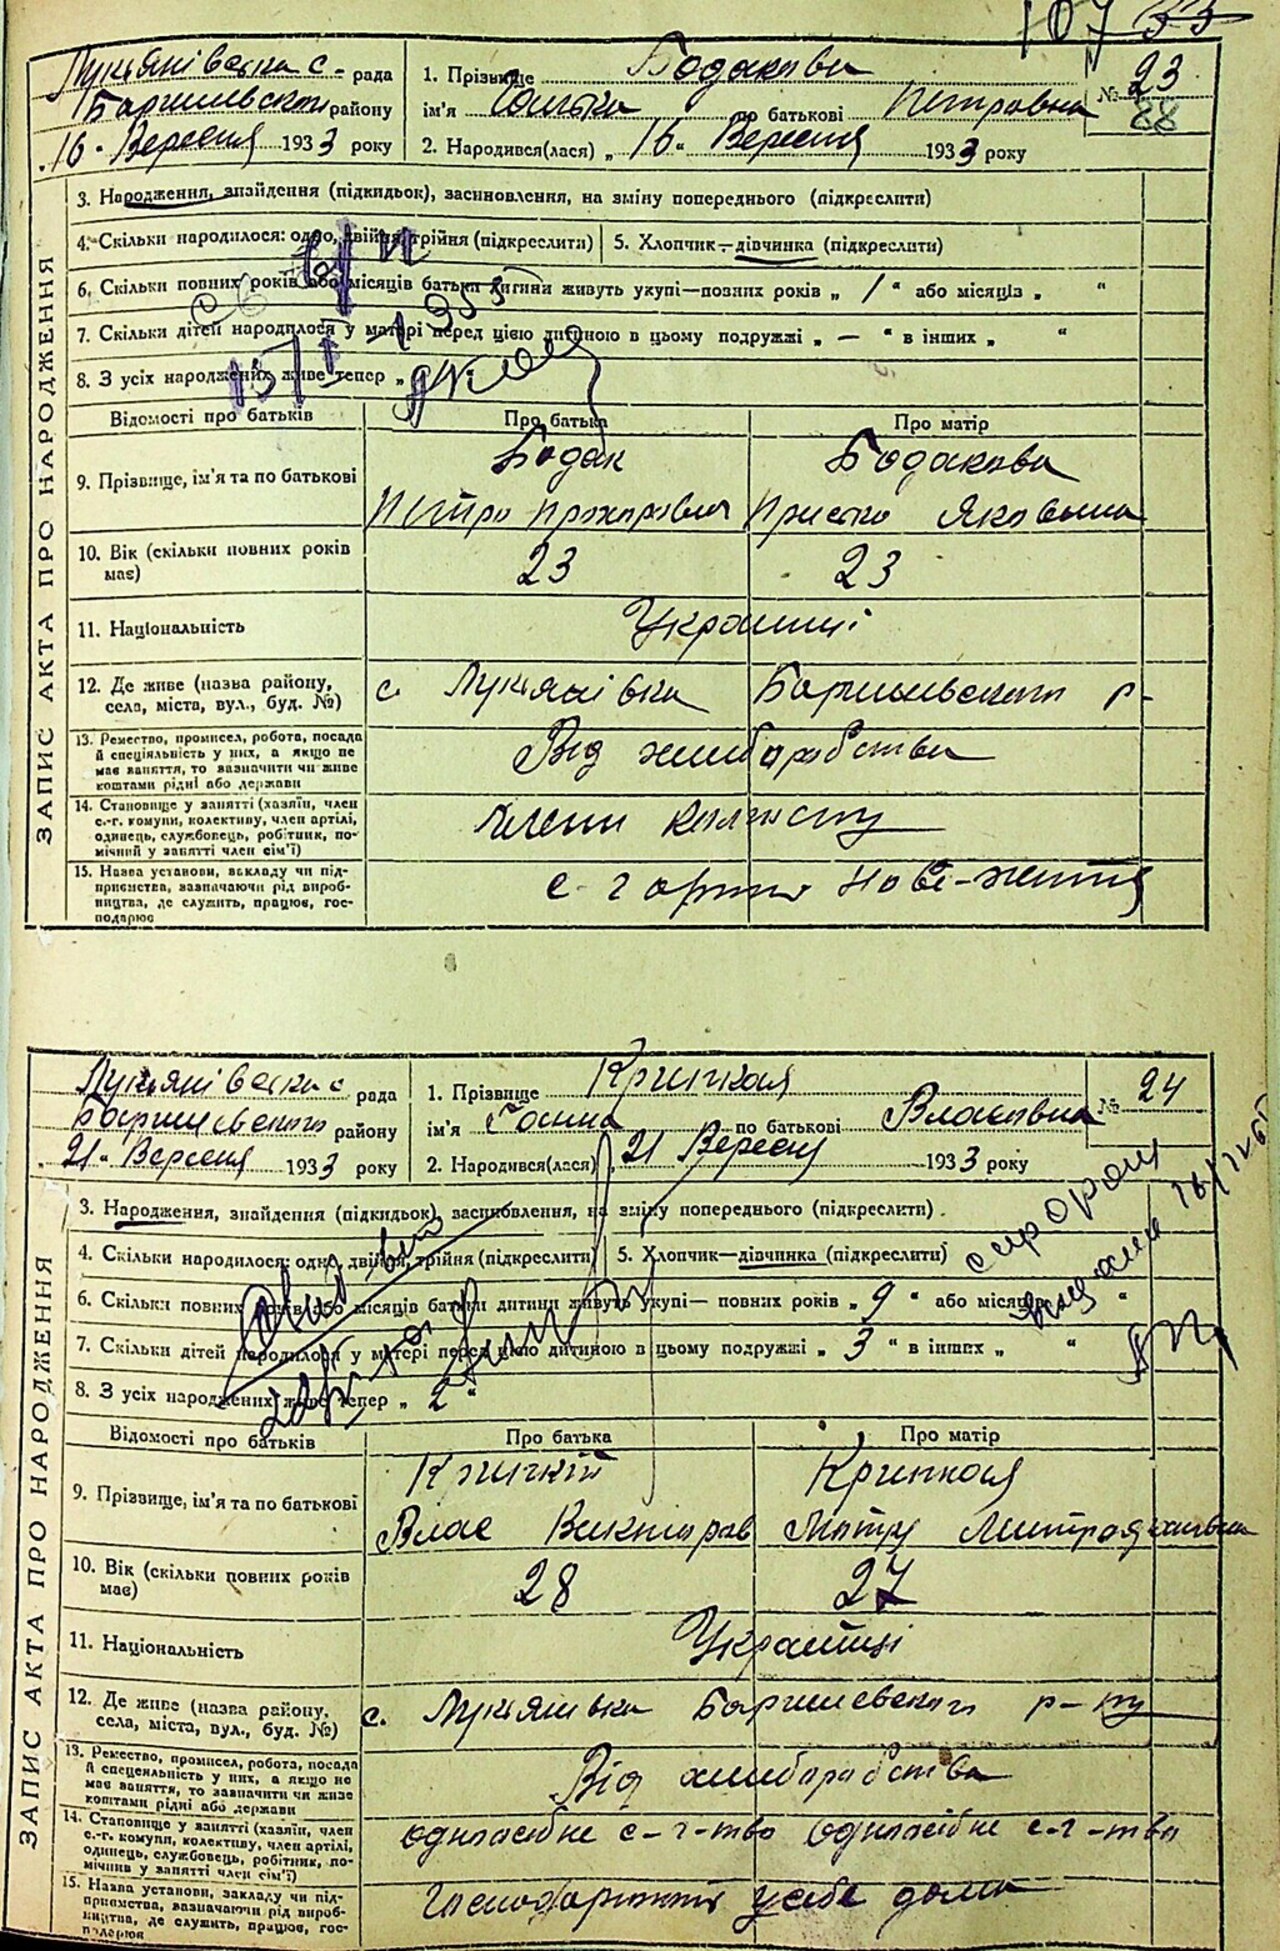 107 33
Лукянівська с. рада
Баришевського району
„16“ Вересня 1933 року
1. Прізвище Бодакова
ім'я по батькові Петровна
2. Народився(лася) „16“ Вересня 1933 року
№ 23
88
ЗАПИС АКТА ПРО НАРОДЖЕННЯ
3. Народження, знайдення (підкидьок), засиновлення, на зміну попереднього (підкреслити)
4. Скільки народилося: одно, двійня, трійня (підкреслити) 5. Хлопчик—дівчинка (підкреслити)
6. Скільки повних років або місяців батьки дитини живуть укупі—повних років „ 1 “ або місяців „ “
7. Скільки дітей народилося у матері перед цією дитиною в цьому подружжі „ — “ в інших „ “
8. З усіх народжених живе тепер „
Відомості про батьків Про батька Про матір
9. Прізвище, ім'я та по батькові
Бодак Бодакова
Петро Прохорович Приська Яковына
10. Вік (скільки повних років має) 23 23
11. Національність Українці
12. Де живе (назва району, села, міста, вул., буд. №) с. Лукянівка Баришевського р-
13. Ремество, промисел, робота, посада й спеціяльність у них, а якщо не має заняття, то зазначити чи живе коштами рідні або держави
Від хліборобства
14. Становище у занятті (хазяїн, член с.-г. комуни, колективу, член артілі, одинець, службовець, робітник, помічний у занятті член сім'ї)
Члени колгоспу
15. Назва установи, закладу чи підприємства, зазначаючи рід виробництва, де служить, працює, господарює
с-г артіль Нове-життя
Лукянівська с рада
Баришевського району
„21“ Вересня 1933 року
1. Прізвище Крипкая
ім'я Ганна по батькові Власовна
2. Народився(лася) „21 Вересня 1933 року
№ 24
ЗАПИС АКТА ПРО НАРОДЖЕННЯ
3. Народження, знайдення (підкидьок), засиновлення, на зміну попереднього (підкреслити)
4. Скільки народилося: одно, двійня, трійня (підкреслити) 5. Хлопчик—дівчинка (підкреслити)
6. Скільки повних років або місяців батьки дитини живуть укупі— повних років „ 9 “ або місяців „ “
7. Скільки дітей народилося у матері перед цією дитиною в цьому подружжі „ 3 “ в інших „ “
8. З усіх народжених живе тепер „ 2 “
Відомості про батьків Про батька Про матір
9. Прізвище, ім'я та по батькові
Крипкій Крипкая
Влас Викторов Мотря
10. Вік (скільки повних років має) 28 27
11. Національність Українці
12. Де живе (назва району, села, міста, вул., буд. №) с. Лукянівка Баришевського р-ну
13. Ремество, промисел, робота, посада й спеціяльність у них, а якщо не має заняття, то зазначити чи живе коштами рідні або держави
Від хліборобства
14. Становище у занятті (хазяїн, член с.-г. комуни, колективу, член артілі, одинець, службовець, робітник, помічник у занятті член сім'ї)
одноосібне с-г-тво одноосібне с-г-тво
15. Назва установи, закладу чи підприємства, зазначаючи рід виробництва, де служить, працює, господарює
у себе дома